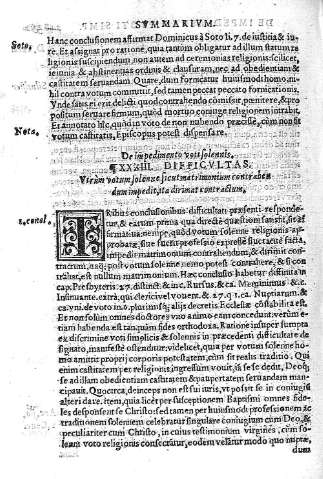 SVMMARIVM.
Soto.
Hanc conclusionem affirmat Dominicus à Soto li. 7. de iustitia & iu-
re. Et assignat pro ratione, quia tantum obligatur ad illum statum re
ligionis suscipiendum non autem ad ceremonias religionis: scilicet,
ieiunia & abstinentias ordinis & clausuram, nec ad obedientiam &
castitatem seruandam. Quare, dum fornicatur huiusmodi homo, ni-
hil contra votum committit, sed tamen peccat peccato fornicationis.
Vnde sat erit delicti quod contrahendo commisit, poenitere, & pro
positum seruare firmum, quòd mortuo coniuge religionem intrabit.
Nota.
Et adnotato hîc, quòd in voto de non nubendo præcisè, cum non sit
votum castitatis, Episcopus potest dispensare.
De impedimento voti solennis.
¶ XXXIII. DIFFICVLTAS.
Vtrum votum solenne sicut matrimonium contrahen
dum impedit, ita dirimat contractum.
1. conclu.
TRibus conclusionibus difficultati præsenti responde-
tur, & earum prima quæ directè quæstioni satisfacit, sit af
firmatiua: nempe, quòd votum solenne religionis ap-
probatæ, siue fuerit professio expressè siue tacitè facta,
impedit matrimonium contrahendum, & dirimit con-
tractum, nam post votum solenne nemo potest contrahere, & si con
trahat, est nullum matrimonium. Hæc conclusio habetur
cap. Presbyteris. 27. distinct. & in c. Rursus. & ca. Meminimus. & c.
Insinuante. extra, qui clerici vel vouen. & 27. q. 1. ca. Nuptiarum. &
alijs decretis Ecclesiæ constabilita est.
Et non solùm omnes doctores vno animo eam concedunt: verùm e-
tiam habenda est tanquàm fides orthodoxa. Ratione insuper sumpta
ex discrimine voti simplicis & solennis in præcedenti difficultate de
signato, manifestè ostenditur: videlicet, quia per votum solenne ho-
mo amittit proprij corporis potestatem, cùm sit realis traditio. Qui
enim castitatem per religionis, ingressum vouit, is se se dedit, Deo,
se ad illam obedientiam castitatem & paupertatem seruandam man-
cipauit. Quocirca, deinceps non est sui iuris, vt possit se in coniugē
alteri dare. Item, quia licet per susceptionem Baptismi omnes fide-
les desponsent se Christo: sed tamen per huiusmodi professionem ac
traditionem solennem celebratur singulare coniugium cum Deo, &
peculiariter cum Christo, in cuius testimonium virgines, cùm so-
lenni voto religionis consecratur, eodem velātur modo quo nuptæ,
dum